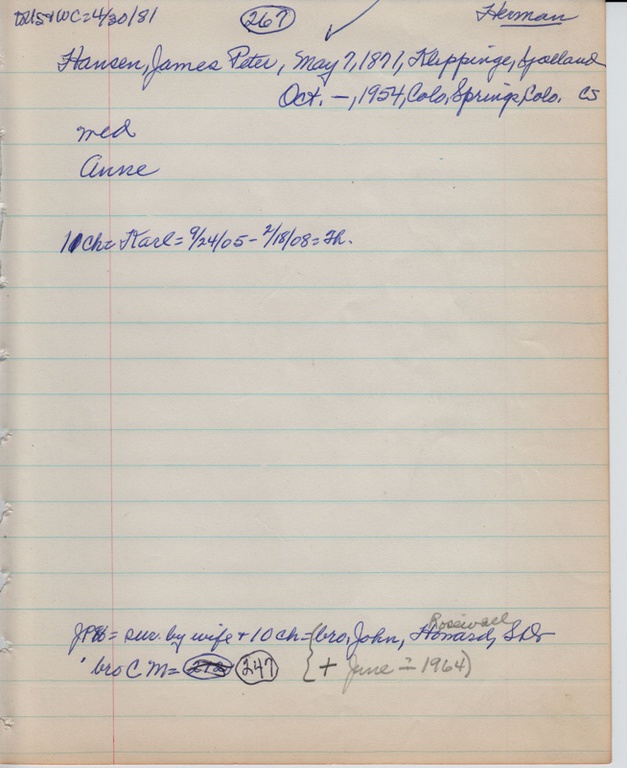 WC=4/30/81 267 Herman
Hansen, James Peter, May 7, 1871, Klippinge, Sjælland
Oct. –, 1954, Colo. Springs, Colo. CS
med
Anne
10 ch= Karl= 9/24/05 – 2/18/08=
= sur. by wife + 10 ch= (bro, John, Howard, S.D.
bro C M= 247 + June = 1964)